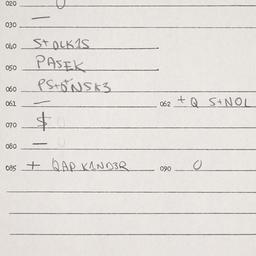 020 0
030 —
040 S+OLK1S
050 PASEK
060 PS+DNSK3
061 — 062 +Q S+NOL
070 $
080 —
085 + QAP K1ND3R 090 0